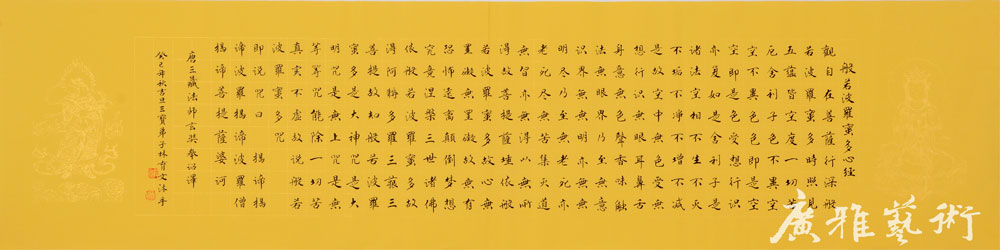 般若波羅蜜多心經
觀自在菩薩行深般
若波羅蜜多時照見
五蘊皆空度一切苦
厄舍利子色不異空
空不異色色即是空
空即是色受想行識
亦復如是舍利子是
諸法空相不生不滅
不垢不淨不增不減
是故空中無色無受
想行識無眼耳鼻舌
身意無色聲香味觸
法無眼界乃至無意
識界無無明亦無無
明盡乃至無老死亦無
老死盡無苦集滅道
無智亦無得以無所
得故菩提薩埵依般
若波羅蜜多故心無
罣礙無罣礙故無有
恐怖遠離顛倒夢想
究竟涅槃三世諸佛
依般若波羅蜜多故
得阿耨多羅三藐三
菩提故知般若波羅
蜜多是大神咒是大
明咒是無上咒是無
等等咒能除一切苦
真實不虛故說般若
波羅蜜多咒
即說咒曰 揭諦揭
諦波羅揭諦波羅僧
揭諦菩提薩婆訶
唐三藏法師玄奘奉詔譯
癸巳年秋吉旦三寶弟子林育文沐手
廣雅藝術